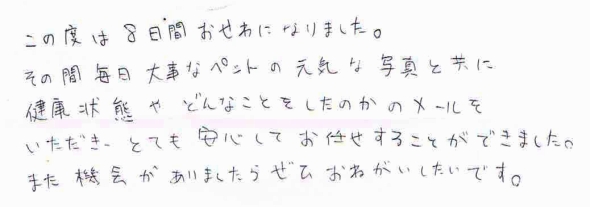 この度は8日間おせわになりました。
その間毎日大事なペットの元気な写真と共に
健康状態やどんなことをしたのかのメールを
いただき、とても安心してお任せすることができました。
また機会がありましたらぜひおねがいしたいです。